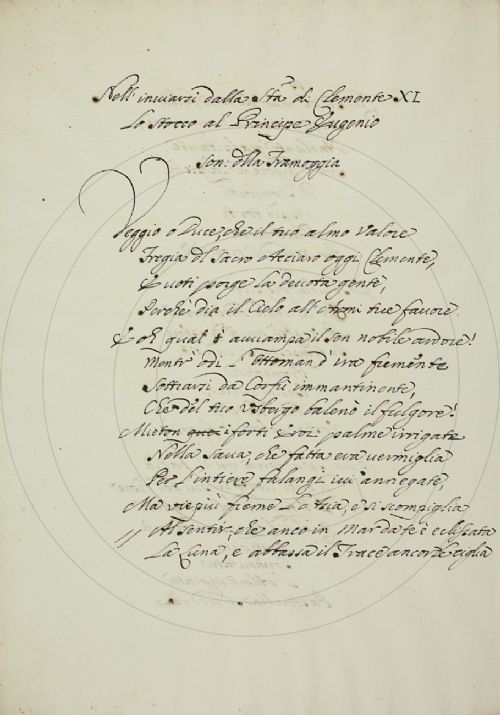 Nell' inviarsi dalla Stà di Clemente XI
Lo Stocco al Principe Eugenio
Son: della Tramoggia
Veggio o Duce, che il tuo almo valore
Fregia del Sacro Acciaro oggi Clemente,
E voti porge la devota gente,
Perchè dia il Cielo all' armi tue favore.
E oh qual t' avvampa il sen nobile ardore!
Mentr' odi l' Ottoman d' ira fremente
Sottrarsi da Corfù immantinente,
Che del tuo Usbergo balenò il fulgore!
Mieton i forti Eroi palme irrigate
Nella Sava, che fatta era vermiglia
Per l' intiere falangi ivi annegate,
Ma vie più freme l' Asia, e si scompiglia
Al sentir, che anco in Mar da fè è eclissata
La Luna, e abbassa il Trace ancor le ciglia